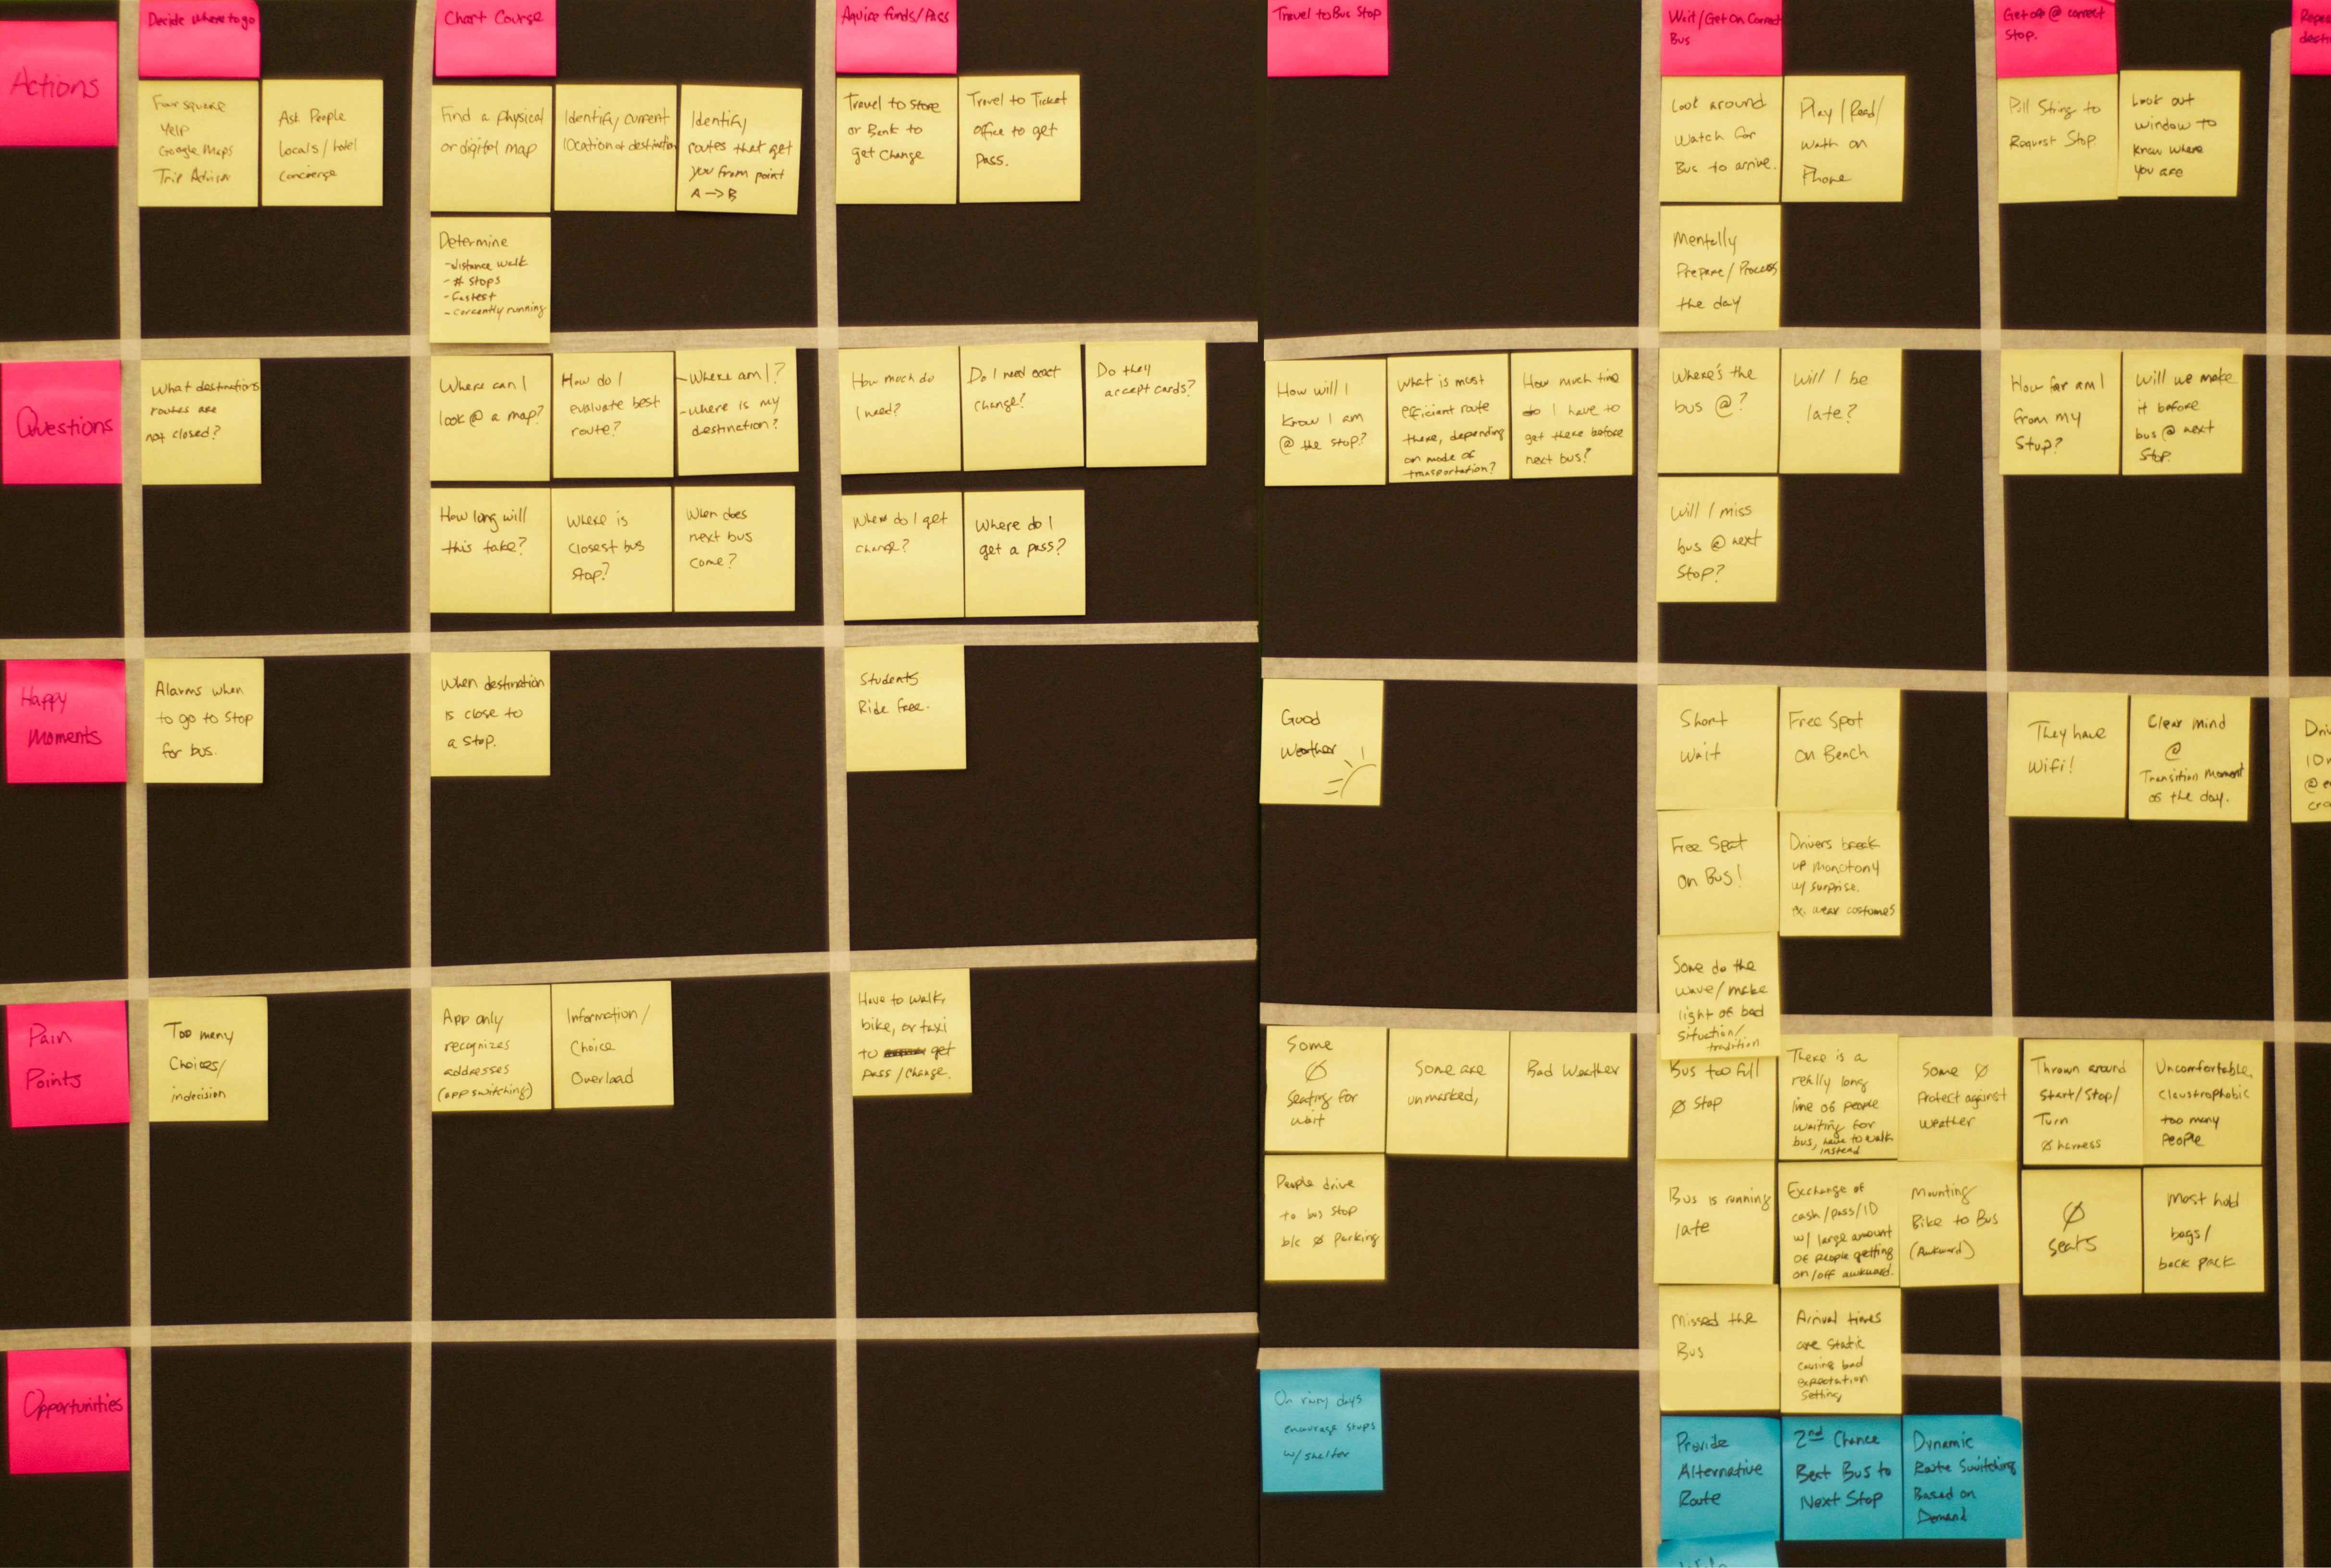 Decide where to go
Chart Course
Aquire funds/Pass
Travel to Bus Stop
Wait/Get On Correct
Bus
Get off @ correct
Stop.
Actions
Four square
Yelp
Google Maps
Trip Advisor
Ask People
Locals/hotel
Concierge
Find a physical
or digital map
Identify current
location & destination
Identify
routes that get
you from point
A → B
Determine
- distance walk
- # stops
- fastest
- currently running
Travel to Store
or Bank to
get Change
Travel to Ticket
Office to get
Pass.
Look around
Watch for
Bus to arrive.
Play/Read/
Watch on
Phone
Mentally
Prepare/Process
the day
Pull String to
Request Stop
Look out
window to
know where
you are
Questions
What destinations
routes are
not closed?
Where can I
look @ a map?
How do I
evaluate best
route?
- Where am I?
- Where is my
destination?
How long will
this take?
Where is
closest bus
stop?
When does
next bus
come?
How much do
I need?
Do I need exact
change?
Do they
accept cards?
Where do I get
change?
Where do I
get a pass?
How will I
know I am
@ the stop?
What is most
efficient route
there, depending
on mode of
transportation?
How much time
do I have to
get there before
next bus?
Where's the
bus @?
Will I be
late?
Will I miss
bus @ next
Stop?
How far am I
from my
Stop?
Will we make
it before
bus @ next
Stop.
Happy
Moments
Alarms when
to go to stop
for bus.
When destination
is close to
a stop.
Students
Ride free.
Good
Weather
Short
Wait
Free Spot
on Bench
Free Spot
on Bus!
Drivers break
up monotony
w/ surprise.
ex. wear costumes
Some do the
wave/make
light of bad
situation/
tradition
They have
Wifi!
Clear mind
@
Transition moment
of the day.
Pain
Points
Too many
Choices/
indecision
App only
recognizes
addresses
(app switching)
Information/
Choice
Overload
Have to walk,
bike, or taxi
to get
pass/change.
Some
Ø
Seating for
wait
Some are
unmarked,
Bad Weather
People drive
to bus stop
b/c Ø parking
Bus too full
Ø stop
There is a
really long
line of people
waiting for
bus, have to walk
instead
Some Ø
Protect against
weather
Bus is running
late
Exchange of
cash/pass/ID
w/ large amount
of people getting
on/off awkward.
Mounting
Bike to Bus
(Awkward)
Missed the
Bus
Arrival times
are static
causing bad
expectation
setting
Thrown around
Start/Stop/
Turn
Ø harness
Uncomfortable,
claustrophobic
too many
people
Ø
seats
Most hold
bags/
back pack
Opportunities
On rainy days
encourage stops
w/ shelter
Provide
Alternative
Route
2nd Chance
Best Bus to
Next Stop
Dynamic
Route Switching
Based on
Demand